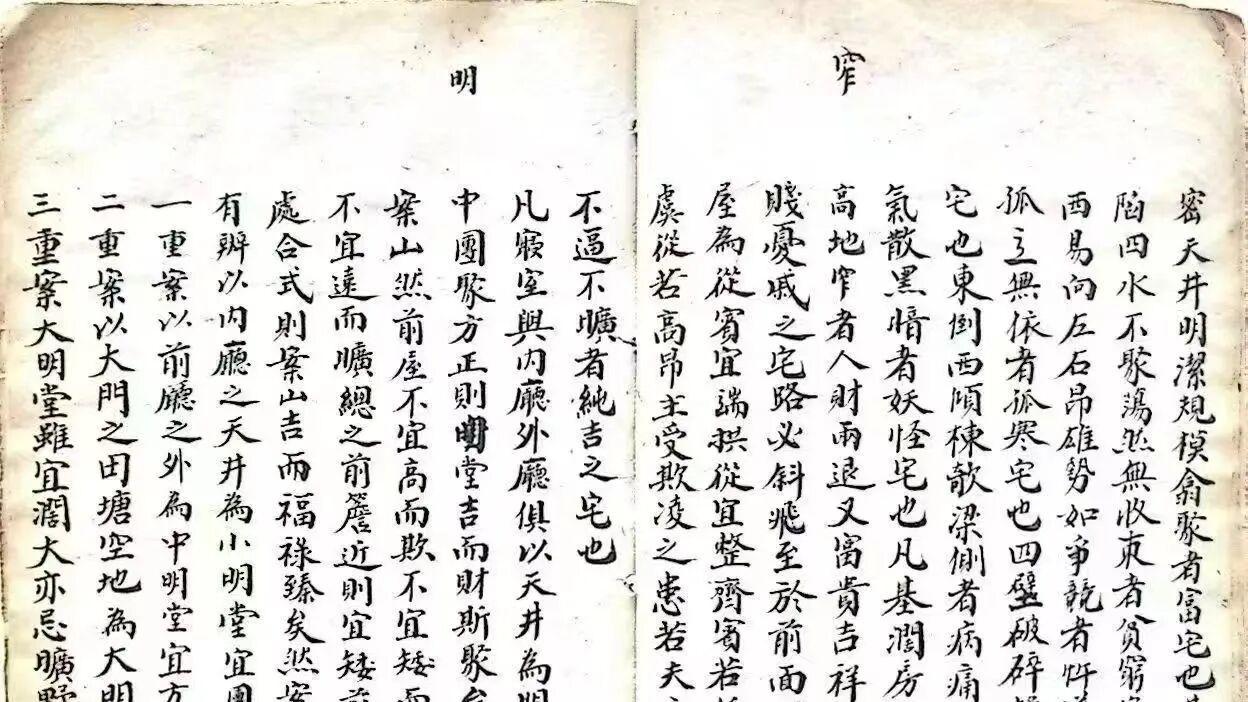 窄
密天井明潔規模翕聚者富宅也
陷四水不聚蕩然無收束者貧窮
西易向左右昂雄勢如爭競者忤
孤立無依者孤寒宅也四壁破碎
宅也東倒西傾棟欹梁側者病痛
氣散黑暗者妖怪宅也凡基濶房
高地窄者人財兩退又富貴吉祥
賤憂戚之宅路必斜飛至於前面
屋為從賓宜端拱從宜整齊賓若
虞從若高昂主受欺凌之患若夫
明
不逼不曠者純吉之宅也
凡寢室與內廳外廳俱以天井為明
中團聚方正則明堂吉而財斯聚矣
案山然前屋不宜高而欺不宜矮而
不宜遠而曠總之前簷近則宜矮前
處合式則案山吉而福祿臻矣然案
有辦以內廳之天井為小明堂宜團
一重案以前廳之外為中明堂宜方
二重案以大門之田塘空地為大明
三重案大明堂雖宜濶大亦忌曠野